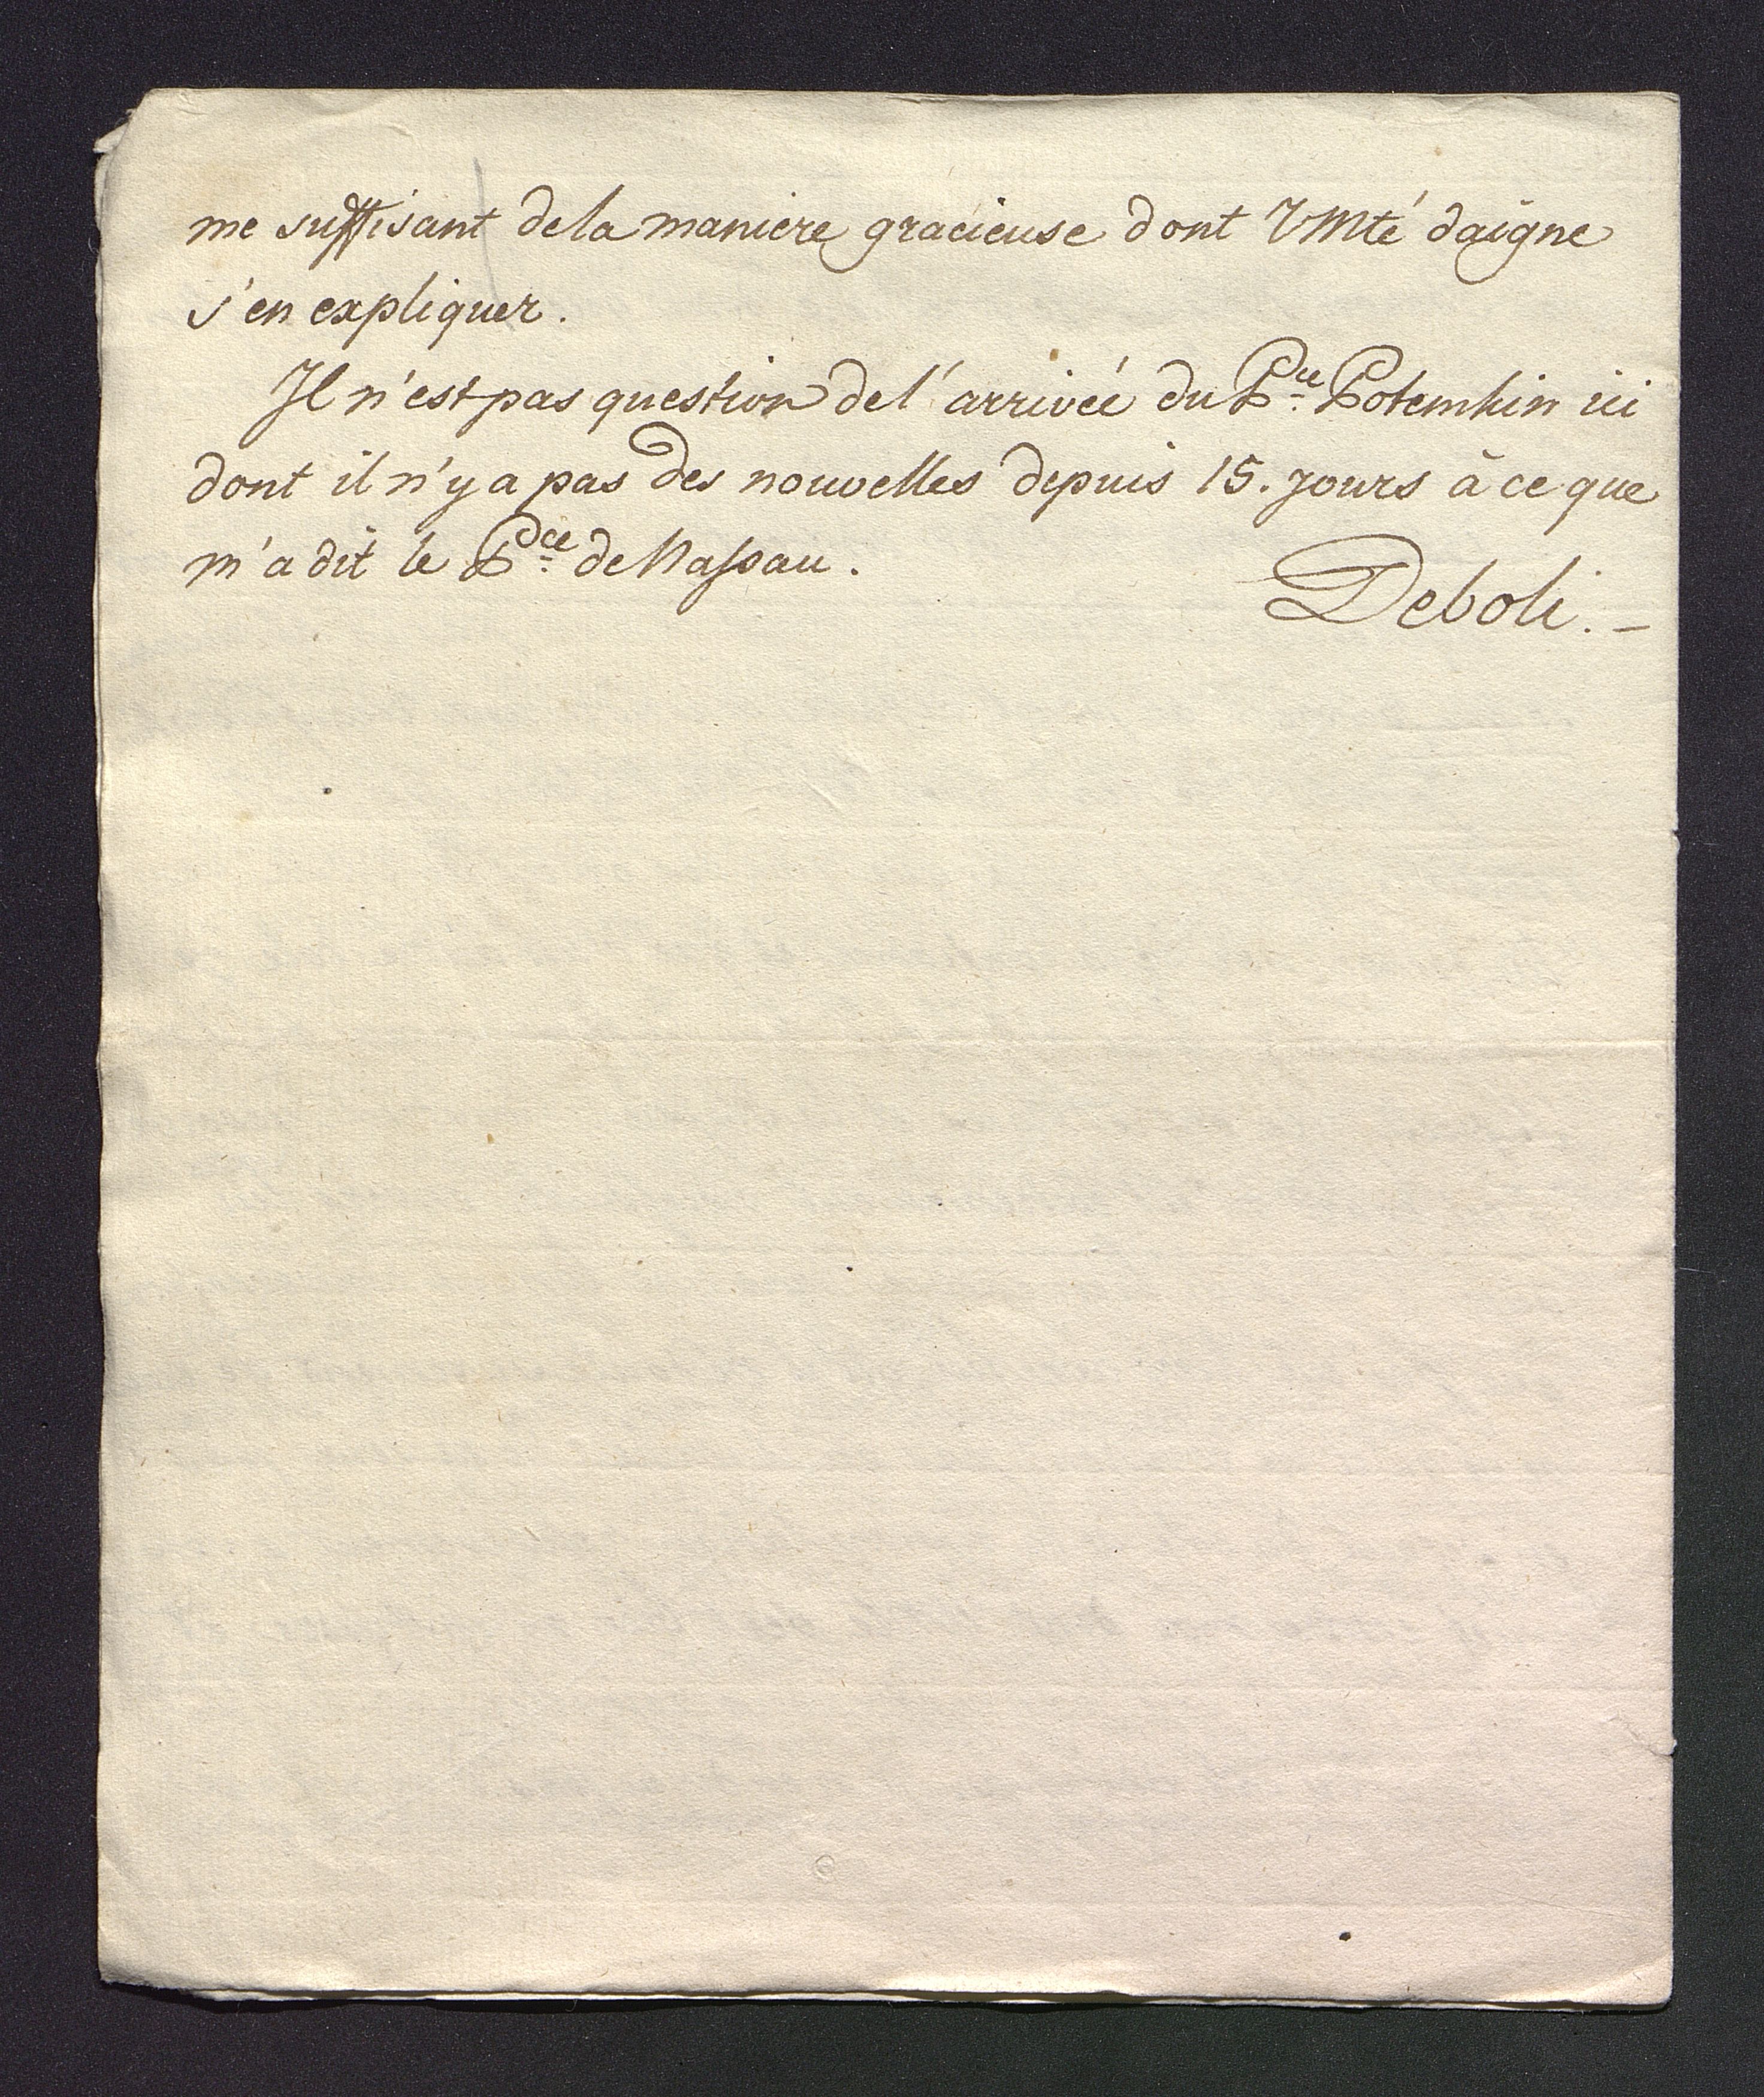 me suffisant de la maniere gracieuse dont VMté daigne
s'en expliquer.
Il n'est pas question de l'arrivée du Pce Potemkin ici
dont il n'y a pas des nouvelles depuis 15. jours à ce que
m'a dit le Pce de Nassau.
Deboli. -